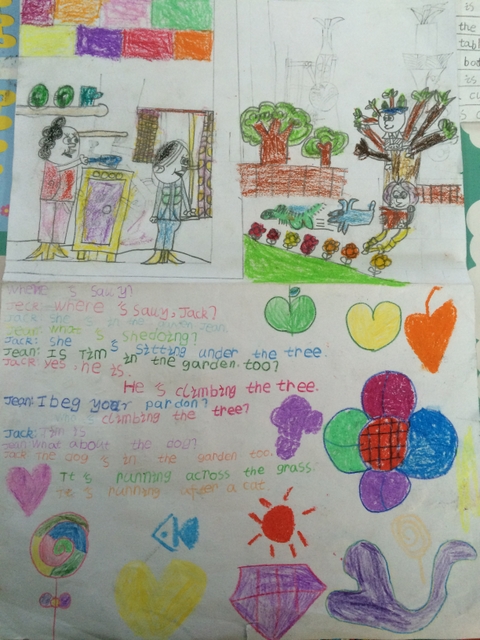 Where 's Sally?
Jack: where 's Sally, Jack?
Jack: she 's in the garden Jean.
Jean: what 's she doing?
Jack: she 's sitting under the tree.
Jean: Is Tim in the garden too?
Jack: yes he is.
He 's climbing the tree.
Jean: I beg your pardon?
who's climbing the tree?
Jack: Tim is
Jean: what about the dog?
Jack The dog 's in the garden too.
It 's running across the grass.
It 's running after a cat.
is
the